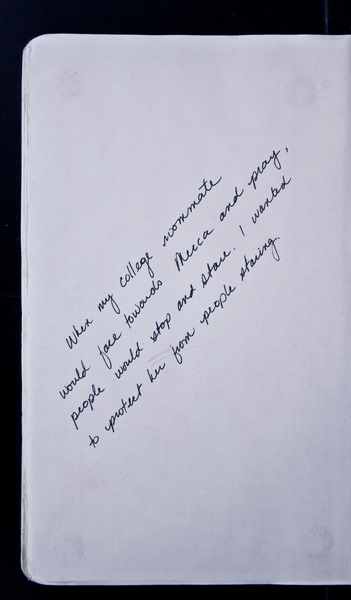 When my college roommate
would face towards Mecca and pray,
people would stop and stare. I wanted
to protect her from people staring.